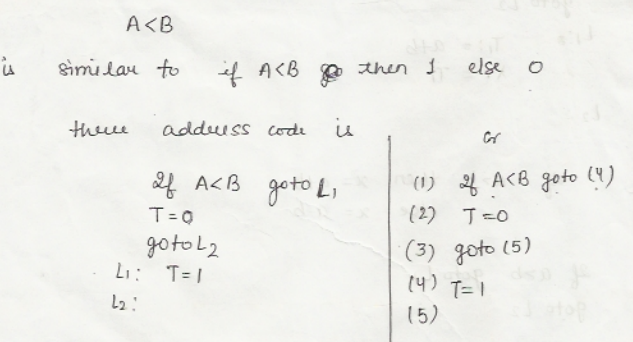 A<B
is similar to if A<B then 1 else 0
three address code is
If A<B goto L1
T=0
goto L2
L1: T=1
L2:
or
(1) If A<B goto (4)
(2) T=0
(3) goto (5)
(4) T=1
(5)